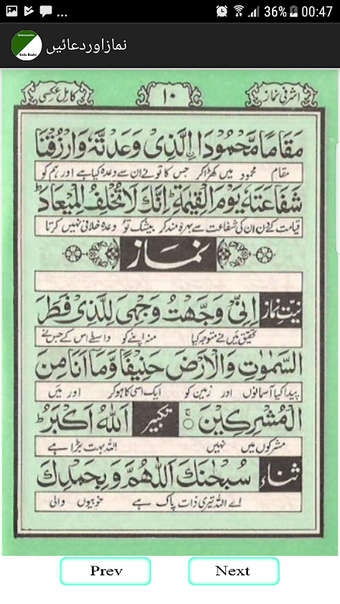 36% 00:47
نماز اور دعائیں
اشرفی نماز ۱۰ کامل عکسی
مَقَامًا مَّحْمُودَا إِلَّذِي وَعَدْتَّهُ وَارْزُقْنَا
مقام محمود میں کھڑا کر جس کا تو نے ان سے وعدہ کیا ہے اور ہم کو
شَفَاعَتَهٗ يَوْمَ الْقِيٰمَةِ إِنَّكَ لَا تُخْلِفُ الْمِيْعَادَ
قیامت کے دن ان کی شفاعت سے بہرہ مند کر بیشک تو وعدہ خلافی نہیں کرتا
نماز
نیت نماز اِنِّيْ وَجَّهْتُ وَجْهِيَ لِلَّذِيْ فَطَرَ
تحقیق میں نے متوجہ کیا منہ اپنے کو واسطے اس کے جس نے
السَّمٰوٰتِ وَالْاَرْضَ حَنِيْفًا وَّمَا اَنَا مِنَ
پیدا کیا آسمانوں اور زمین کو ایک اسی کا ہو کر اور میں
الْمُشْرِكِيْنَ تکبیر اَللّٰهُ اَكْبَرُ
مشرکوں میں نہیں اللہ بہت بڑا ہے
ثناء سُبْحٰنَكَ اللّٰهُمَّ وَبِحَمْدِكَ
اے اللہ تیری ذات پاک ہے خوبیوں والی
Prev Next